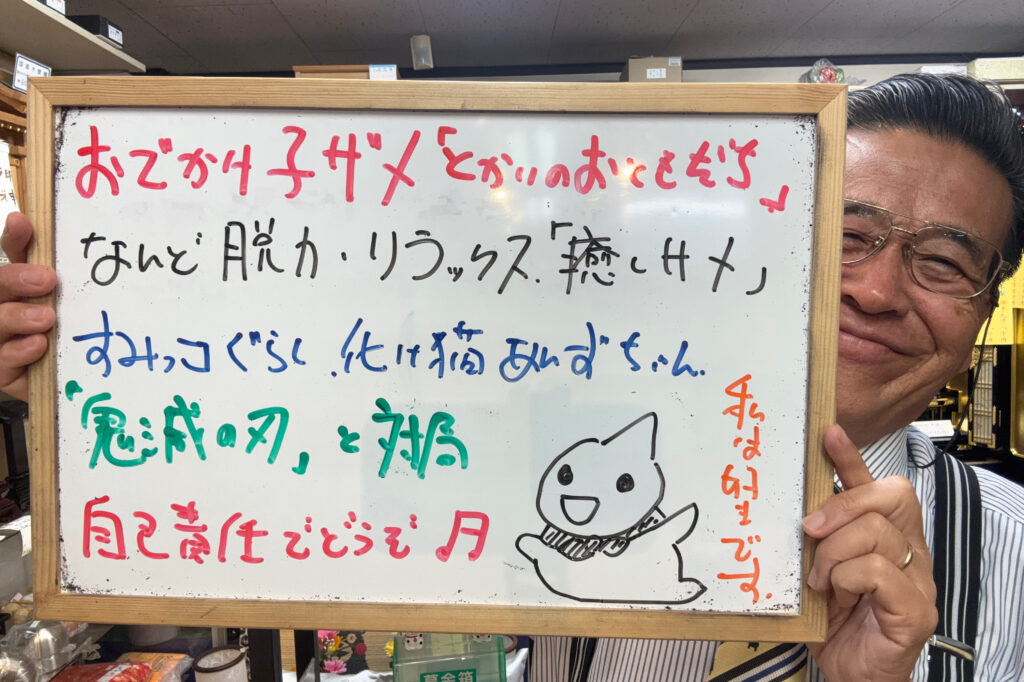 おでかけ子ザメ「とかいのおともだち」
なんど脱力・リラックス.「癒しサメ」
すみっコぐらし.化け猫あんずちゃん.
「鬼滅の刃」と対局
自己責任でどうぞ♪月
私は好きです.
募金箱